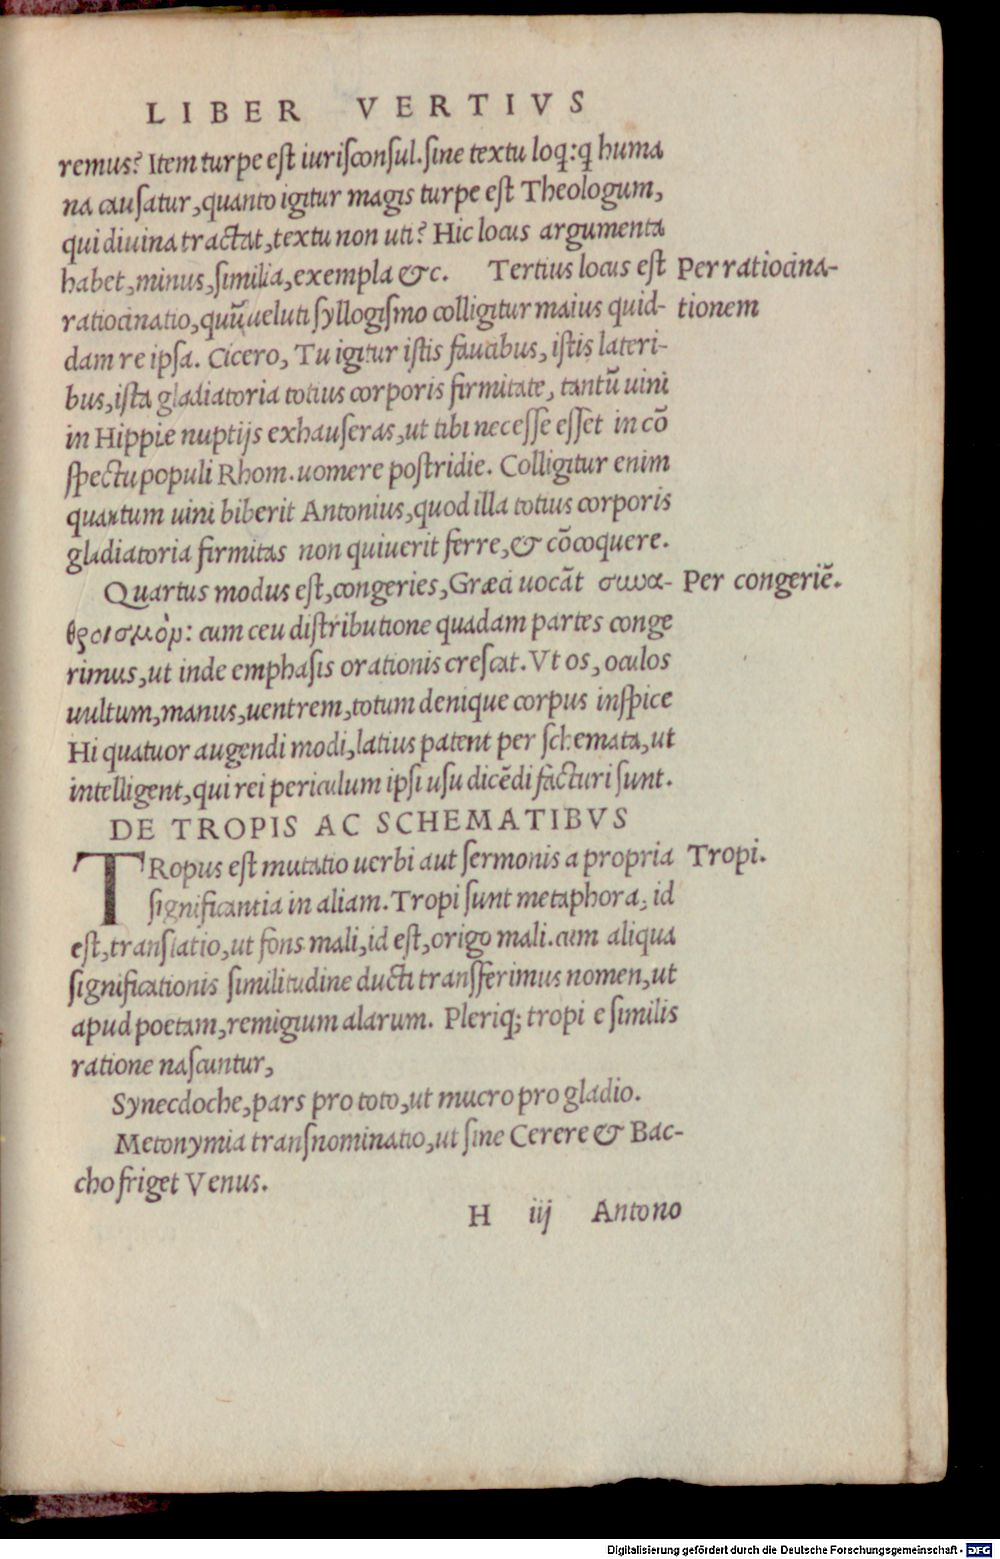 LIBER VERTIVS
remus? Item turpe eſt iuriſconſul. ſine textu loq̃: q̃ huma
na cauſatur, quanto igitur magis turpe eſt Theologum,
qui diuina tractat, textu non uti? Hic locus argumenta
habet, minus, ſimilia, exempla &c. Tertius locus eſt
Per ratiocina-
ratiocinatio, quũ ueluti ſyllogiſmo colligitur maius quid-
tionem
dam re ipſa. Cicero, Tu igitur iſtis faucibus, iſtis lateri-
bus, iſta gladiatoria totius corporis firmitate, tantũ uini
in Hippie nuptijs exhauſeras, ut tibi neceſſe eſſet in cõ
ſpectu populi Rhom. uomere poſtridie. Colligitur enim
quantum uini biberit Antonius, quod illa totius corporis
gladiatoria firmitas non quiuerit ferre, & cõcoquere.
Quartus modus eſt, congeries, Græci uocãt σωα-
Per congeriẽ.
θροισμὸρ: cum ceu diſtributione quadam partes conge
rimus, ut inde emphaſis orationis creſcat. Vt os, oculos
uultum, manus, uentrem, totum denique corpus inſpice
Hi quatuor augendi modi, latius patent per ſchemata, ut
intelligent, qui rei periculum ipſi uſu dicẽdi facturi ſunt.
DE TROPIS AC SCHEMATIBVS
TRopus eſt mutatio uerbi aut ſermonis a propria
Tropi.
ſignificantia in aliam. Tropi ſunt metaphora; id
eſt, translatio, ut fons mali, id eſt, origo mali. cum aliqua
ſignificationis ſimilitudine ducti transferimus nomen, ut
apud poetam, remigium alarum. Pleriq; tropi e ſimilis
ratione naſcuntur,
Synecdoche, pars pro toto, ut mucro pro gladio.
Metonymia tranſnominatio, ut ſine Cerere & Bac-
cho friget Venus.
H iij Antono
Digitalisierung gefördert durch die Deutsche Forschungsgemeinschaft - DFG